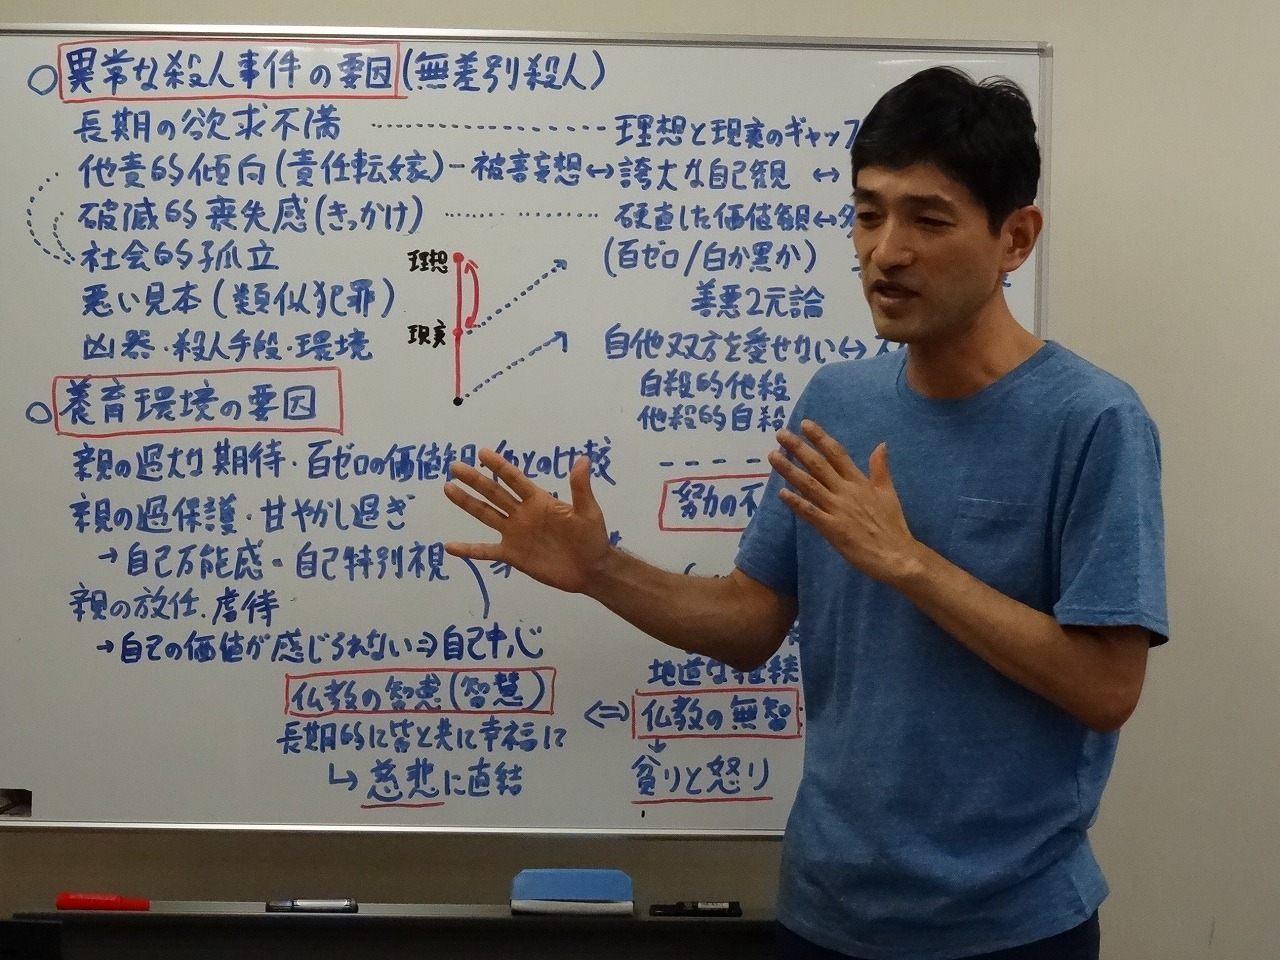 ○異常な殺人事件の要因(無差別殺人)
長期の欲求不満 ------ 理想と現実のギャップ
他責的傾向(責任転嫁)-被害妄想↔誇大な自己観 ↔
破滅的喪失感(きっかけ) ------ 硬直した価値観↔
社会的孤立
(百ゼロ/白か黒か)
理想
悪い見本(類似犯罪)
善悪2元論
現実
凶器・殺人手段・環境
自他双方を愛せない↔
自殺的他殺
○養育環境の要因
他殺的自殺
親の過大な期待・百ゼロの価値観・他との比較
努力の不
親の過保護・甘やかし過ぎ
→自己万能感・自己特別視
親の放任.虐待
→自己の価値が感じられない⇒自己中心
地道な継続
仏教の智恵(智慧) ⇔ 仏教の無智
長期的に皆と共に幸福に
↳慈悲に直結
貧りと怒り